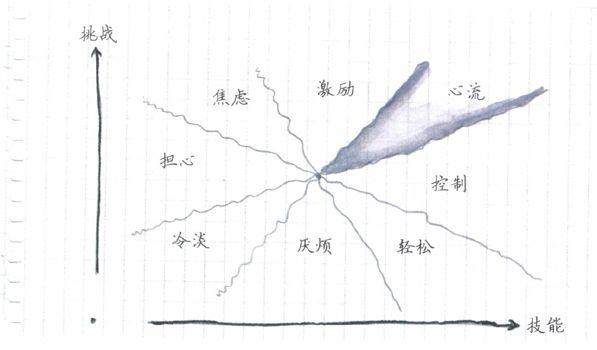 挑战
焦虑
激励
心流
担心
控制
冷淡
厌烦
轻松
技能